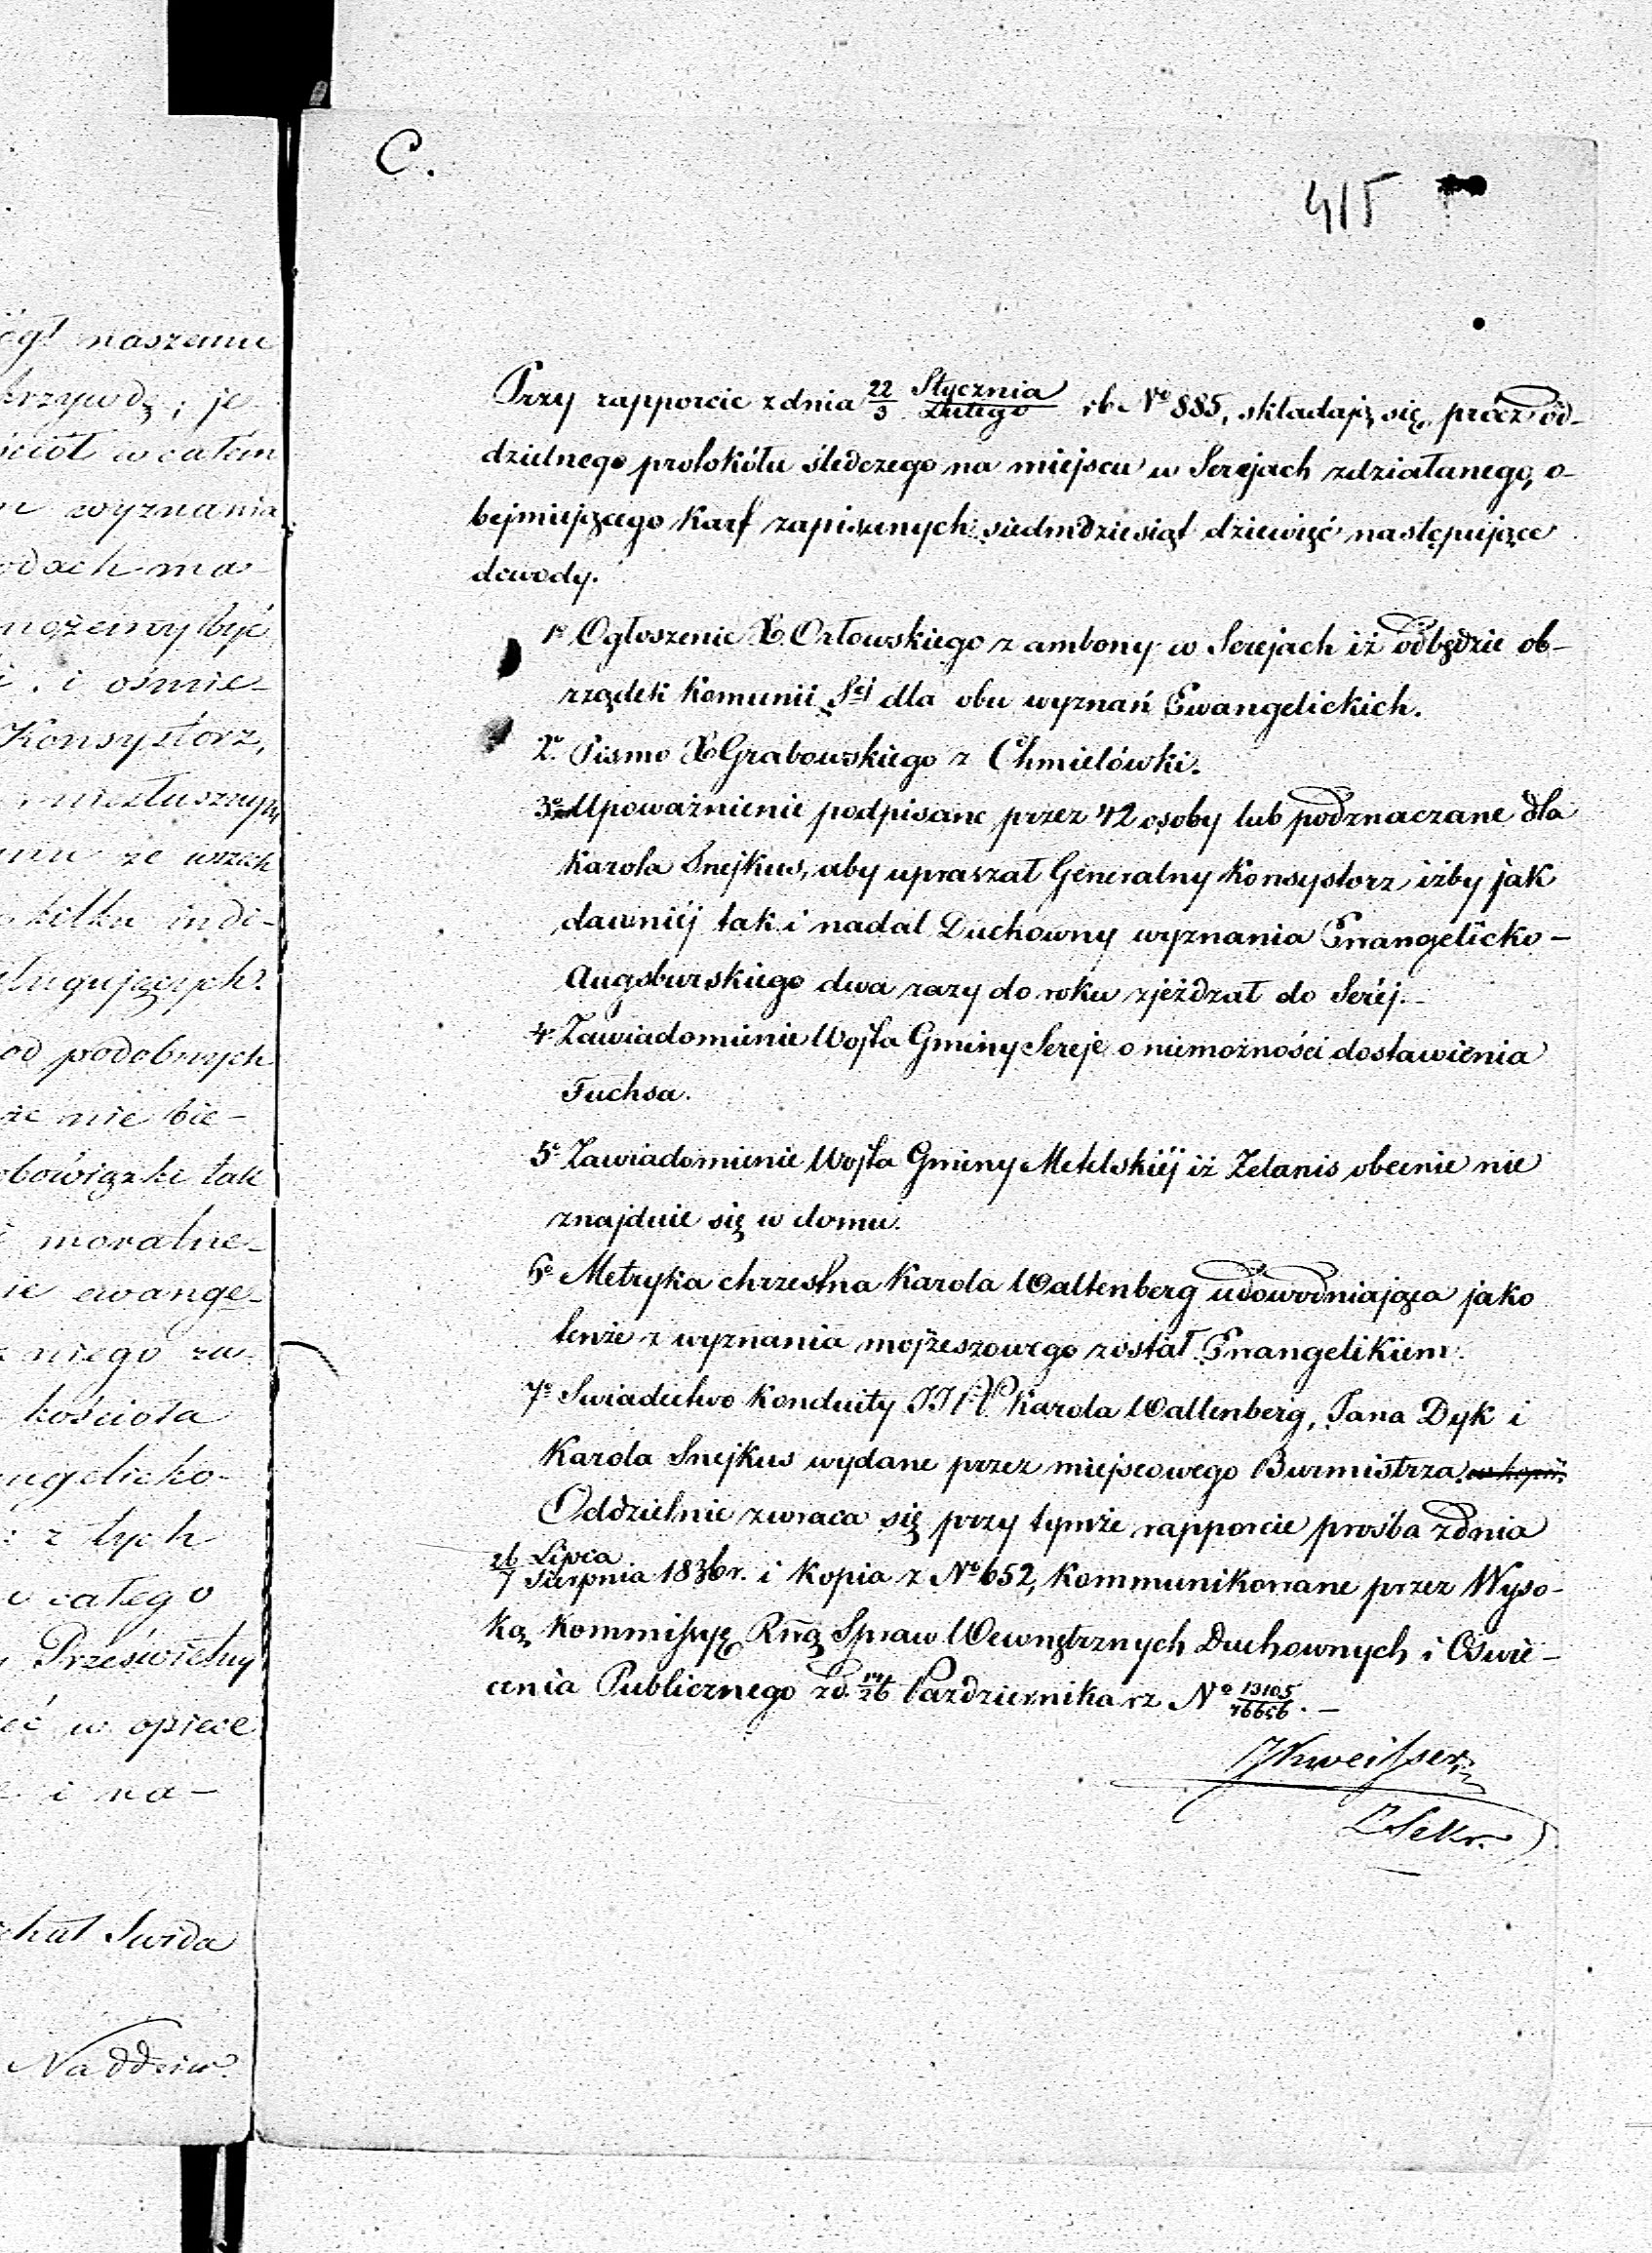 C.
415
Przy rapporcie z dnia 22/3 Stycznia/Lutego rb Nº 885, składają się, prócz od-
dzielnego protokółu śledczego na miejscu w Serejach zdziałanego, o-
bejmującego kart zapisanych siedmdziesiąt dziewięć następujące
dowody.
1º Ogłoszenie X. Orłowskiego z ambony w Serejach iż odbędzie ob-
rządek Komunii Sej dla obu wyznań Ewangelickich.
2º. Pismo X Grabowskiego z Chmielówki.
3º Upoważnienie podpisane przez 42 osoby lub podznaczane dla
Karola Snejkus, aby upraszał Generalny Konsystorz iżby jak
dawniéj tak i nadal Duchowny wyznania Ewangelicko-
Augsburskiego dwa razy do roku zjeżdzał do Seréj.
4º Zawiadomienie Wojta Gminy Sereje o niemożności dostawienia
Fuchsa.
5º Zawiadomienie Wojta Gminy Metelskiéj iż Zelanis obecnie nie
znajduie się w domu.
6º Metryka chrzestna Karola Waltenberg udowodniająca jako
tenże z wyznania mojżeszowego został Ewangelikiem.
7º Swiadectwo Konduity JJPP. Karola Waltenberg, Jana Dyk i
Karola Snejkus wydane przez miejscowego Burmistrza. w kopii.
Oddzielnie zwraca się przy tymże rapporcie prośba z dnia
26/7 Lipca/Sierpnia 1836 r. i Kopia z Nº 652, Kommunikowane przez Wyso-
ką Kommissyę Rną Spraw Wewnętrznych Duchownych i Oświe-
cenia Publicznego z d. 14/26 Pazdziernika rz Nº 13105/76656. –
Z Sekr.
ógł naszemu
krzywdę, je
ściół w całém
wyznania
odach ma
możemy być
i ośmie-
Konsystorz,
niesłusznych
ze wszech
kilku indi-
ługujących
od podobnych
że nie bie-
obowiązki tak
moralne-
ie ewange-
niego za-
kościoła
angelicko-
z tych
całego
Prześwietny
w opiece
i na-
chał Swida